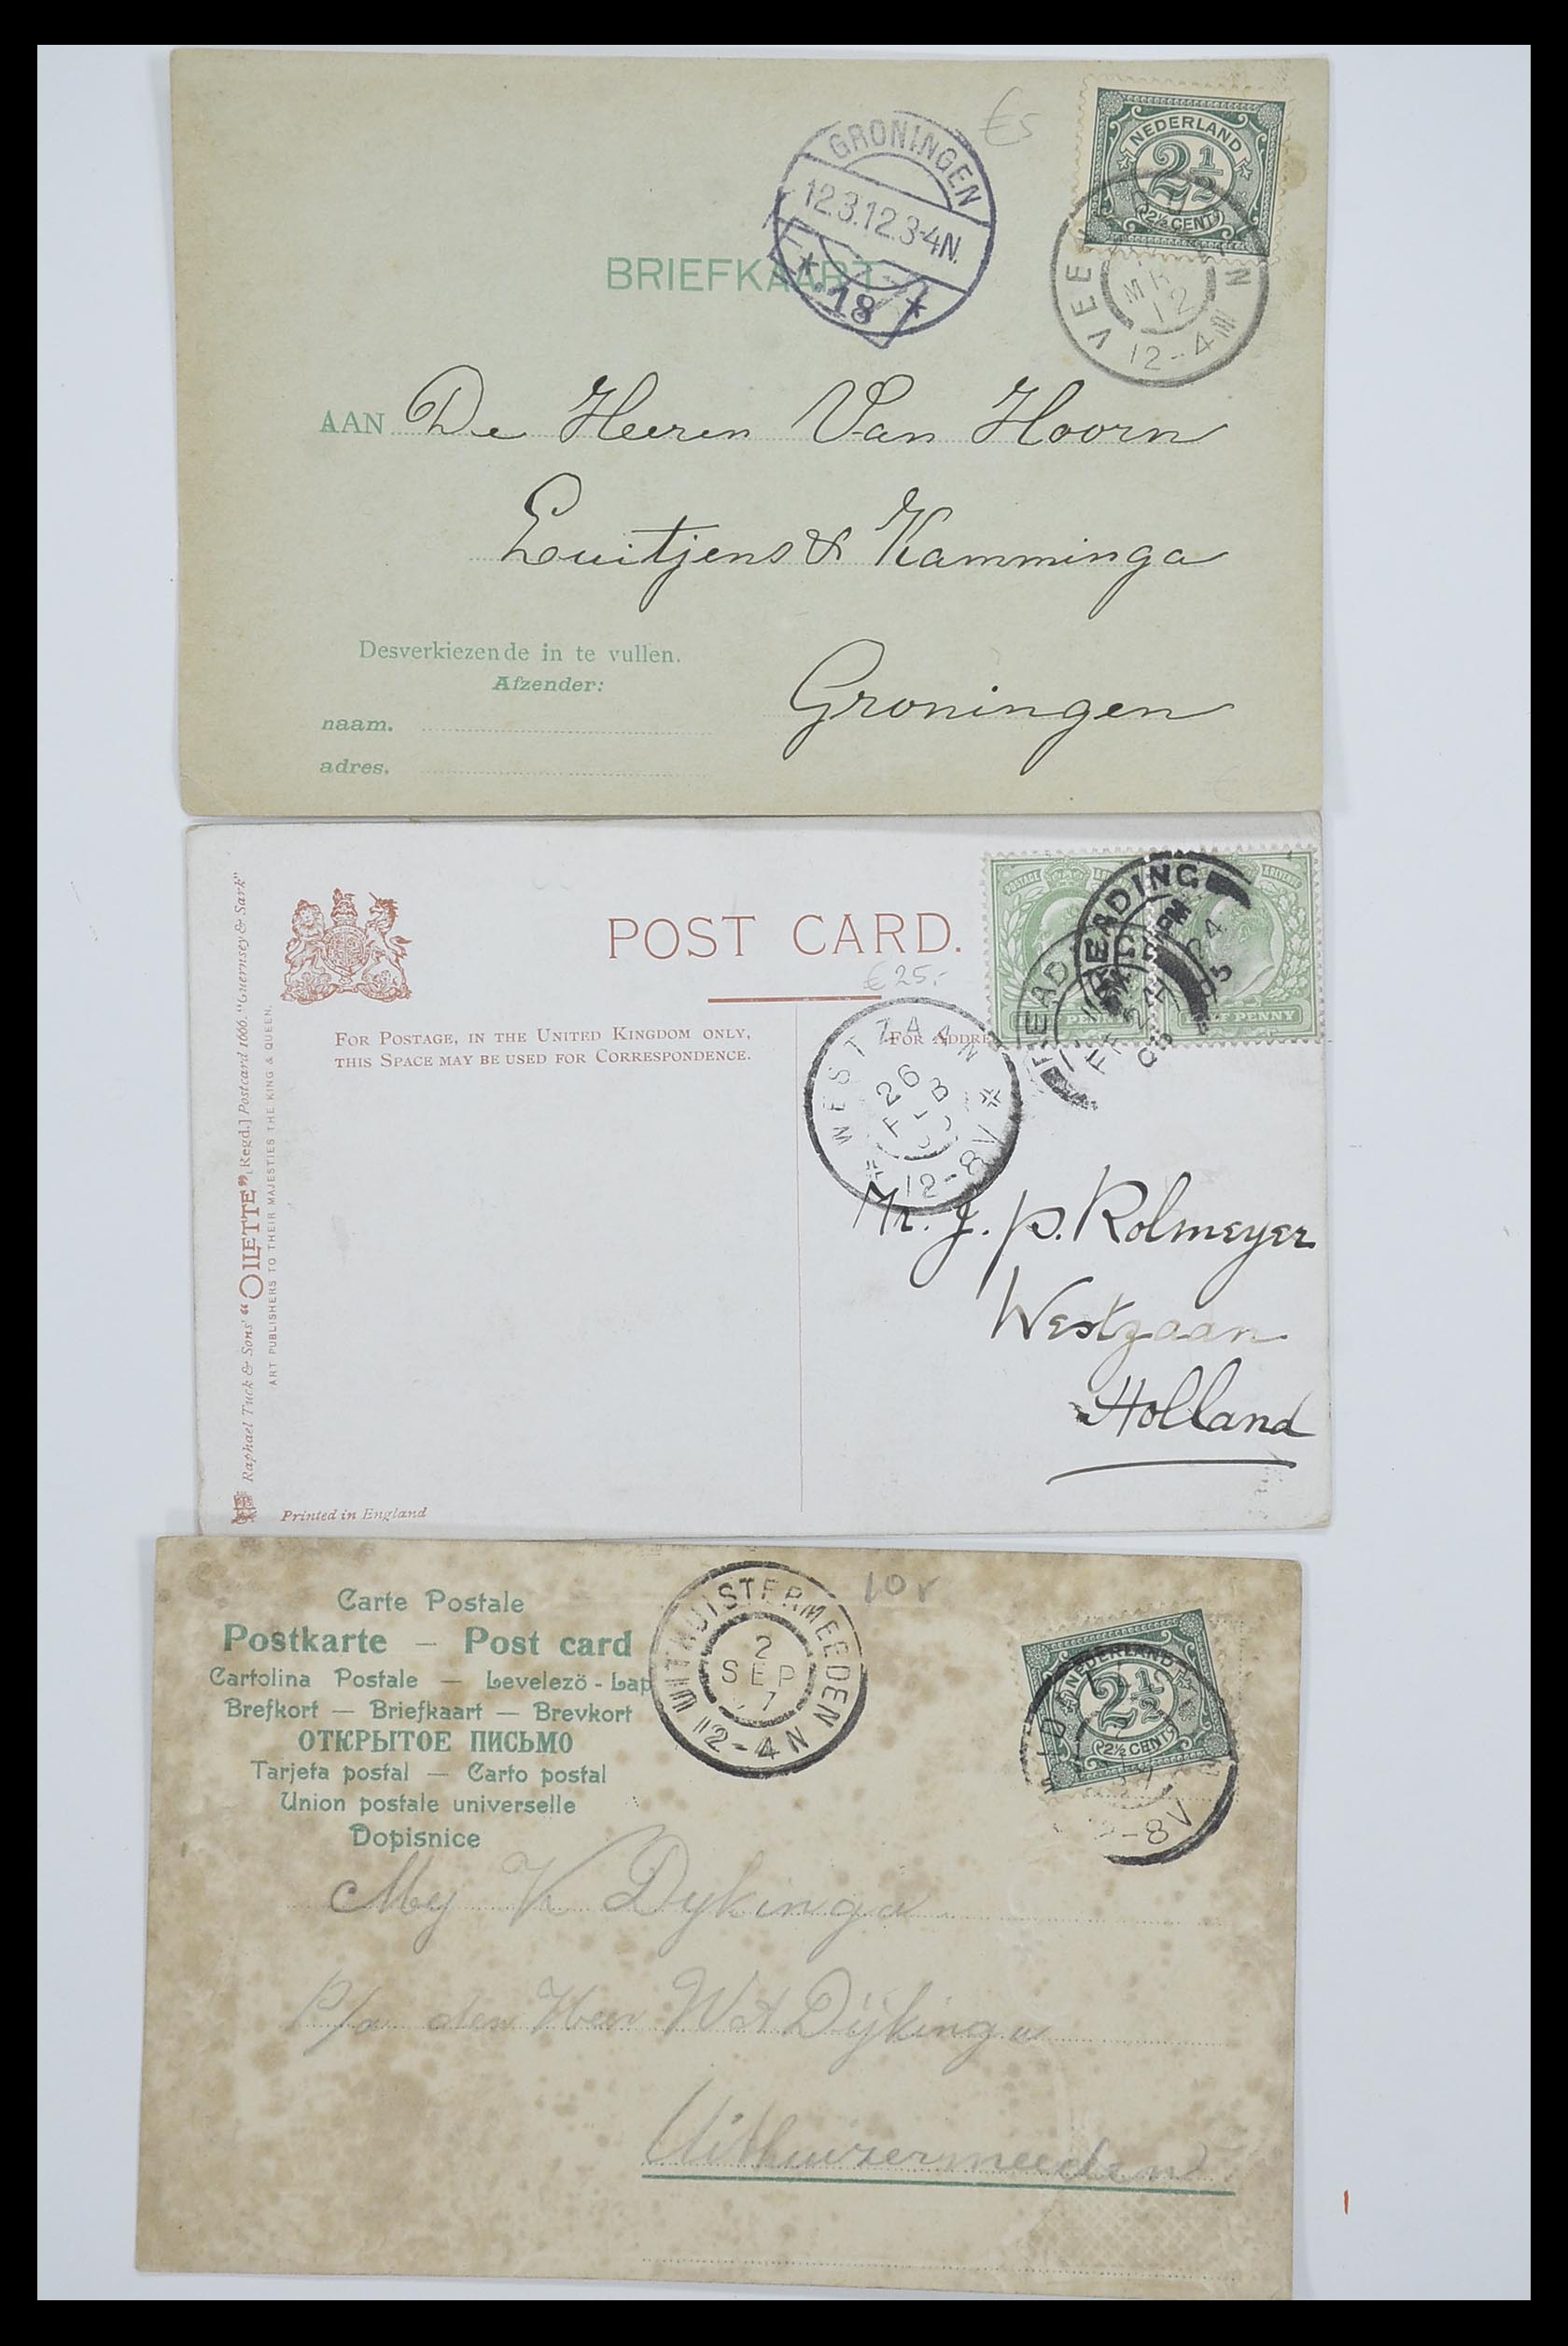 €5
NEDERLAND
2½
2½ CENT
GRONINGEN
12.3.12.3-4N.
* 18 *
VEE N
MRT
12
12-4N
BRIEFKAART
AAN De Heeren Van Hoorn
Luitjens & Kamminga
Groningen
Desverkiezende in te vullen.
Afzender:
naam.
adres.
POST CARD.
€25,-
POSTAGE
HALF PENNY
READING
READING
24
FOR POSTAGE, IN THE UNITED KINGDOM ONLY,
THIS SPACE MAY BE USED FOR CORRESPONDENCE.
FOR ADDRE
WESTZAAN
26
FEB
12-8V
Mr. J. P. Rolmeyer
Westzaan
Holland
Raphael Tuck & Sons' "OILETTE" [Regd.] Postcard 1666. "Guernsey & Sark"
ART PUBLISHERS TO THEIR MAJESTIES THE KING & QUEEN.
Printed in England
Carte Postale
Postkarte — Post card
Cartolina Postale — Levelezö-Lap
Brefkort — Briefkaart — Brevkort
ОТКРЫТОЕ ПИСЬМО
Tarjeta postal — Carto postal
Union postale universelle
Dopisnice
UITHUISTERMEEDEN
2
SEP
7
12-4N
10r
NEDERLAND
2½
2½ CENT
2-8V
Mej K Dykinga
P/a den Heer W A Dijkinga
Uithuizermeeden